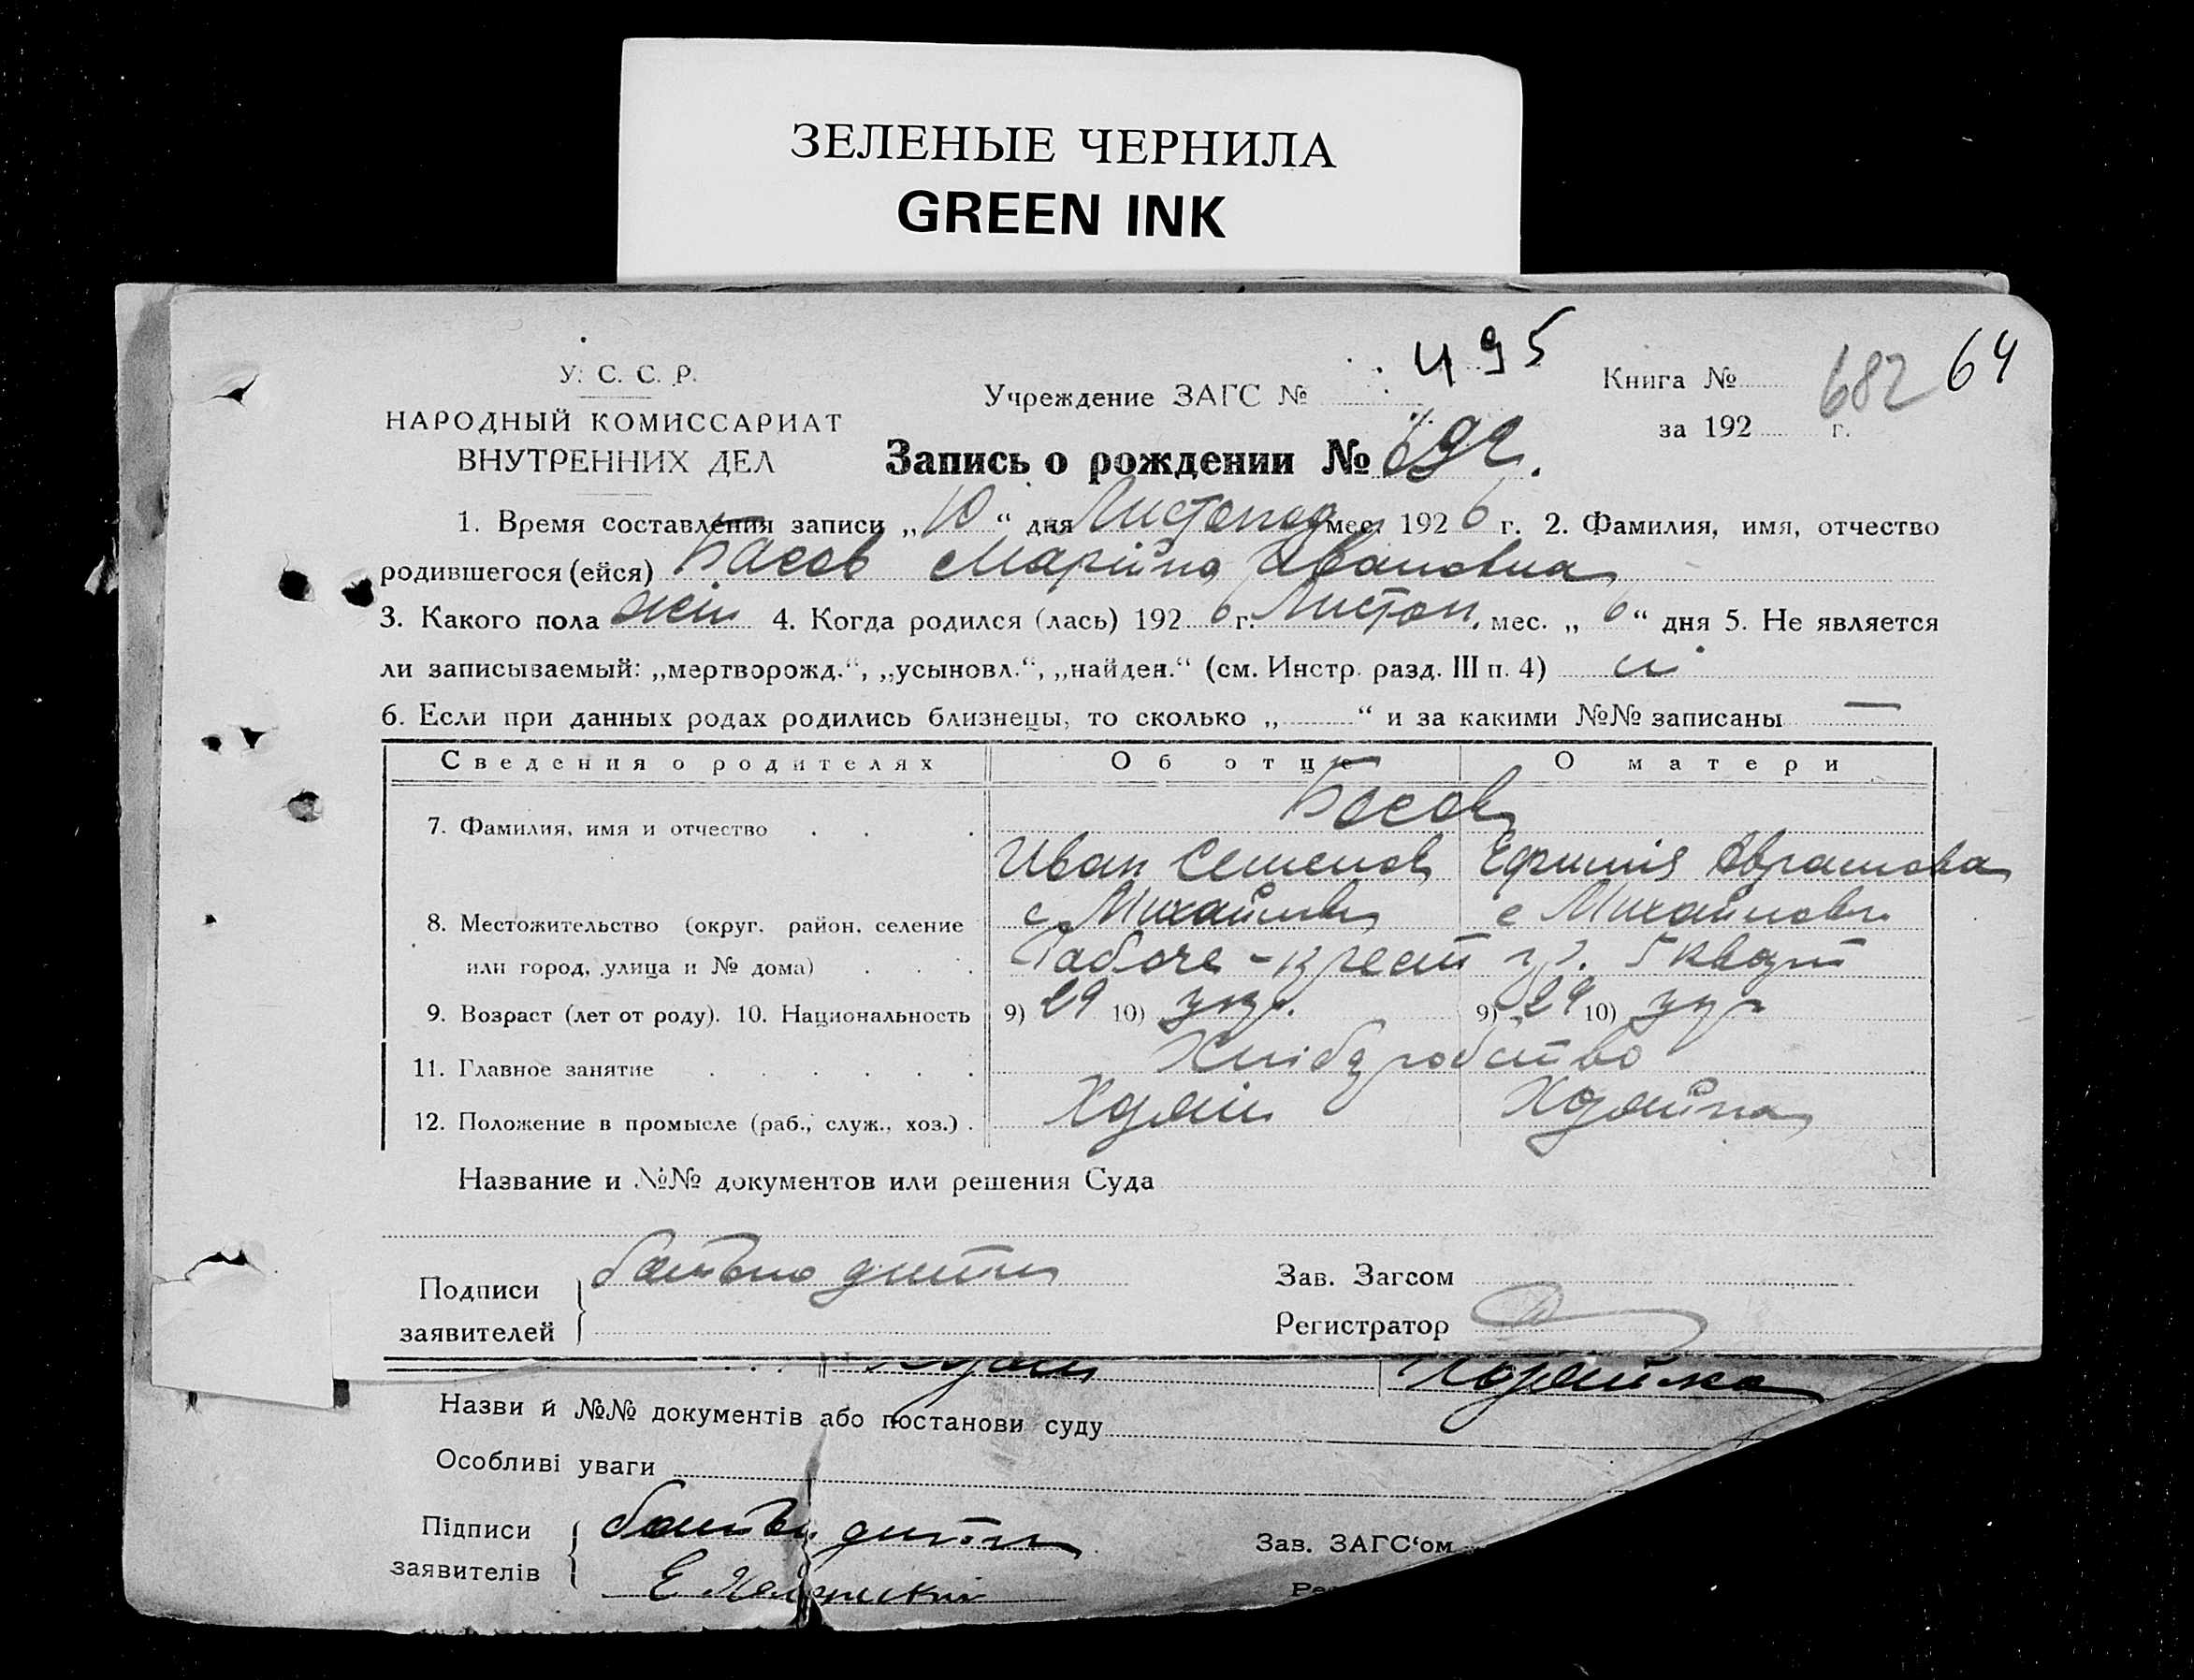 ЗЕЛЕНЫЕ ЧЕРНИЛА
GREEN INK
У. С. С. Р.
НАРОДНЫЙ КОМИССАРИАТ
ВНУТРЕННИХ ДЕЛ
Учреждение ЗАГС № 495
Книга № 682 64
за 192 г.
Запись о рождении № 692.
1. Время составления записи „10“ дня Листопад мес. 1926 г. 2. Фамилия, имя, отчество
родившегося (ейся) Басов Марійна Ивановна
3. Какого пола жін 4. Когда родился (лась) 1926 г. Листоп. мес. „6“ дня 5. Не является
ли записываемый: „мертворожд.“, „усыновл.“, „найден.“ (см. Инстр. разд. III п. 4) н
6. Если при данных родах родились близнецы, то сколько „ “ и за какими №№ записаны —
Сведения о родителях Об отце О матери
7. Фамилия, имя и отчество Басов
Иван Семенов Ефимія Аврамова
8. Местожительство (округ. район, селение с Михайлівка с Михайловка
или город, улица и № дома) Рабоче-крест гр. 5 кварт
9. Возраст (лет от роду). 10. Национальность 9) 29 10) укр. 9) 29 10) укр
11. Главное занятие Хлібуробство
12. Положение в промысле (раб., служ., хоз.) Хозяін Хозяйка
Название и №№ документов или решения Суда
Подписи батько дитини Зав. Загсом
заявителей Регистратор
Хозяін Хозяйка
Назви й №№ документів або постанови суду
Особливі уваги
Підписи батько дитини Зав. ЗАГС‘ом
заявителів Е